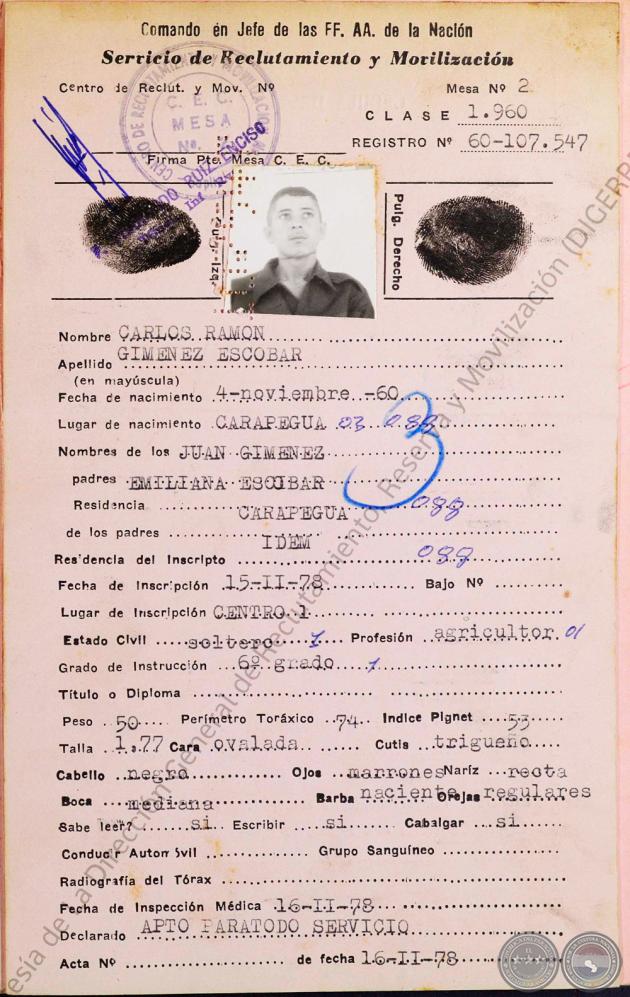 Comando en Jefe de las FF. AA. de la Nación
Servicio de Reclutamiento y Movilización
Centro de Reclut. y Mov. Nº
Mesa Nº 2
CLASE 1.960
REGISTRO Nº 60-107.547
CENTRO DE RECLUTAMIENTO Y MOVILIZACION
C. E. C.
MESA
No.
RUIZ ENCISO
Firma Pte. Mesa C. E. C.
Pulg. Izq.
Pulg. Derecho
Nombre CARLOS RAMON
Apellido GIMENEZ ESCOBAR
(en mayúscula)
Fecha de nacimiento 4-noviembre -60
Lugar de nacimiento CARAPEGUA 03 088
Nombres de los JUAN GIMENEZ
padres EMILIANA ESCIBAR
3
Residencia CARAPEGUA 088
de los padres IDEM
Residencia del Inscripto 088
Fecha de Inscripción 15-II-78 Bajo Nº
Lugar de Inscripción CENTRO 1
Estado Civil soltero 1 Profesión agricultor 01
Grado de Instrucción 6º grado 1
Título o Diploma
Peso 50 Perímetro Toráxico 74 Indice Pignet 53
Talla 1.77 Cara ovalada Cutis trigueño
Cabello negro Ojos marrones Naríz recta
Boca mediana Barba naciente Orejas regulares
Sabe leer? si Escribir si Cabalgar si
Conducir Automóvil Grupo Sanguíneo
Radiografía del Tórax
Fecha de Inspección Médica 16-II-78
Declarado APTO PARATODO SERVICIO
Acta Nº de fecha 16-II-78
esía de La Dirección General de Reclutamiento, Reserva y Movilización (DIGERR